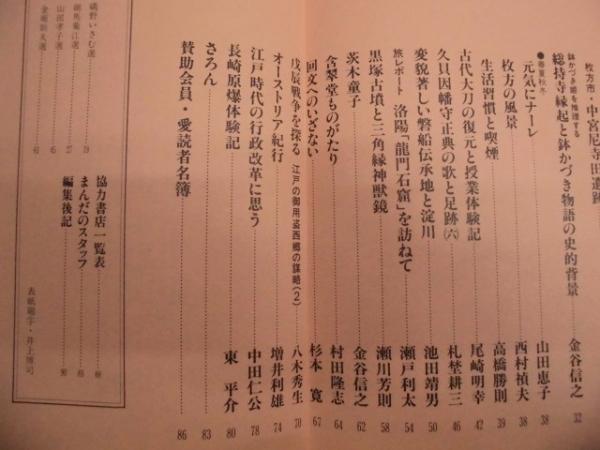 枚方市・中宮尼寺田遺跡
鉢かづき姫を推理する
総持寺縁起と鉢かづき物語の史的背景 金谷信之 32
●春夏秋冬
元気にナーレ 山田恵子 38
枚方の風景 西村禎夫 38
生活習慣と喫煙 高橋勝則 39
古代大刀の復元と授業体験記 尾崎明幸 42
久貝因幡守正典の歌と足跡(六) 札埜耕三 46
変貌著しい磐船伝承地と淀川 池田靖男 50
旅レポート 洛陽「龍門石窟」を訪ねて 瀬戸利太 54
黒塚古墳と三角縁神獣鏡 瀬川芳則 58
茨木童子 金谷信之 62
含翠堂ものがたり 村田隆志 64
回文へのいざない 杉本 寛 67
戊辰戦争を探る 江戸の御用盗西郷の謀略(2) 八木秀生 70
オーストリア紀行 増井利雄 74
江戸時代の行政改革に思う 中田仁公 78
長崎原爆体験記 東 平介 80
さろん 83
賛助会員・愛読者名簿 86
協力書店一覧表
まんだのスタッフ
編集後記
磯野いさむ選
山田孝子選
表紙題字・井上博司